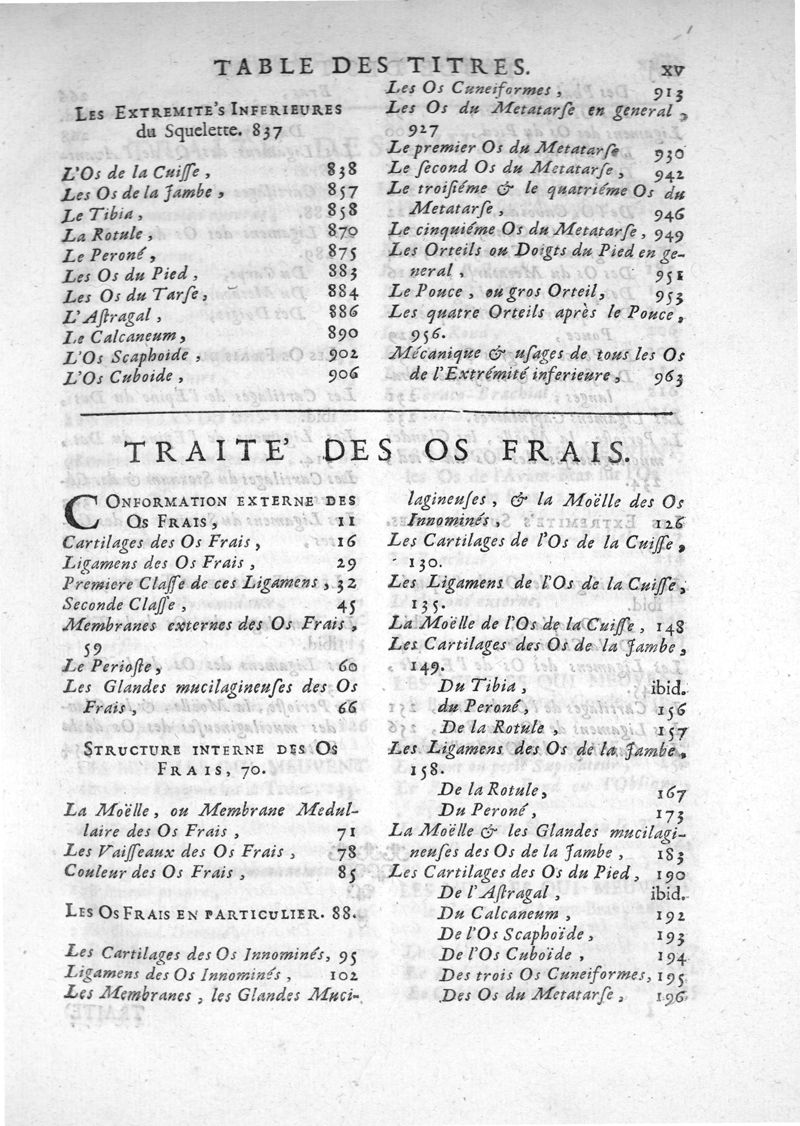 TABLE DES TITRES. XV
LES EXTREMITE'S INFERIEURES
du Squelette. 837
L'Os de la Cuiſſe, 838
Les Os de la Jambe, 857
Le Tibia, 858
La Rotule, 870
Le Peroné, 875
Les Os du Pied, 883
Les Os du Tarſe, 884
L'Aſtragal, 886
Le Calcaneum, 890
L'Os Scaphoide, 902
L'Os Cuboide, 906
Les Os Cuneiformes, 913
Les Os du Metatarſe en general,
927
Le premier Os du Metatarſe 930
Le ſecond Os du Metatarſe, 942
Le troiſiéme & le quatriéme Os du
Metatarſe, 946
Le cinquiéme Os du Metatarſe, 949
Les Orteils ou Doigts du Pied en ge-
neral, 951
Le Pouce, ou gros Orteil, 953
Les quatre Orteils après le Pouce,
956.
Mécanique & uſages de tous les Os
de l'Extrémité inferieure, 963
TRAITE' DES OS FRAIS.
CONFORMATION EXTERNE DES
OS FRAIS, 11
Cartilages des Os Frais, 16
Ligamens des Os Frais, 29
Premiere Claſſe de ces Ligamens, 32
Seconde Claſſe, 45
Membranes externes des Os Frais,
59
Le Perioſte, 60
Les Glandes mucilagineuſes des Os
Frais, 66
STRUCTURE INTERNE DES OS
FRAIS, 70.
La Moëlle, ou Membrane Medul-
laire des Os Frais, 71
Les Vaiſſeaux des Os Frais, 78
Couleur des Os Frais, 85
LES OS FRAIS EN PARTICULIER. 88.
Les Cartilages des Os Innominés, 95
Ligamens des Os Innominés, 102
Les Membranes, les Glandes Muci-
lagineuſes, & la Moëlle des Os
Innominés, 126
Les Cartilages de l'Os de la Cuiſſe,
130.
Les Ligamens de l'Os de la Cuiſſe,
135.
La Moëlle de l'Os de la Cuiſſe, 148
Les Cartilages des Os de la Jambe,
149.
Du Tibia, ibid.
du Peroné, 156
De la Rotule, 157
Les Ligamens des Os de la Jambe,
158.
De la Rotule, 167
Du Peroné, 173
La Moëlle & les Glandes mucilagi-
neuſes des Os de la Jambe, 183
Les Cartilages des Os du Pied, 190
De l'Aſtragal, ibid.
Du Calcaneum, 192
De l'Os Scaphoïde, 193
De l'Os Cuboïde, 194
Des trois Os Cuneiformes, 195
Des Os du Metatarſe, 196